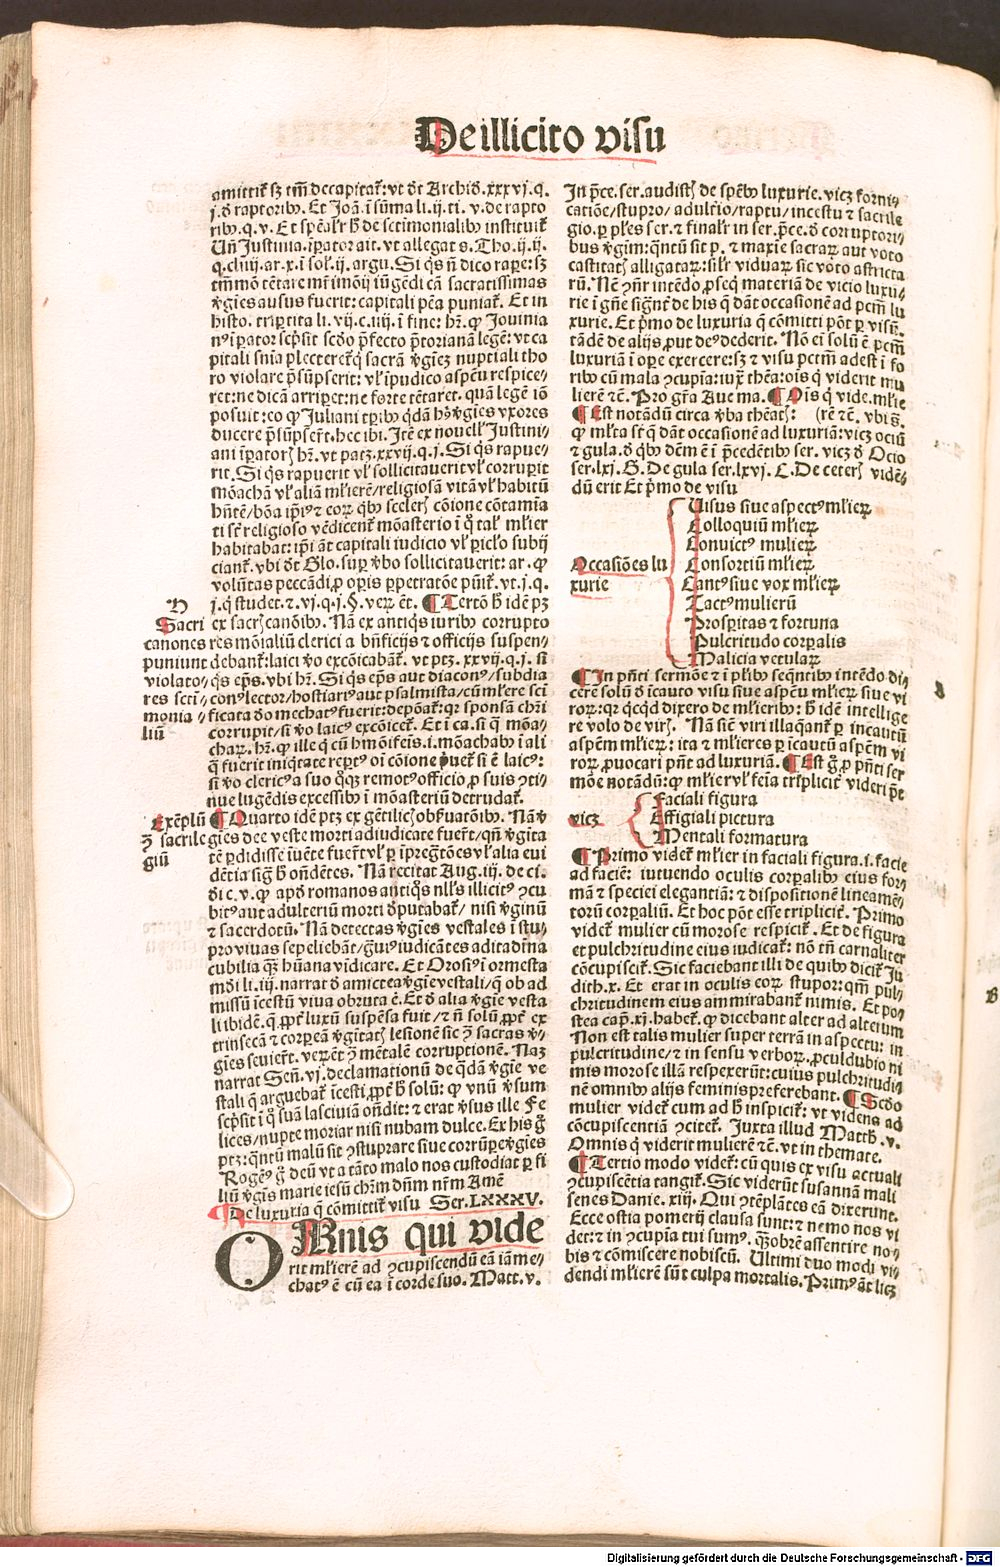 De illicito visu
amittit sꝫ tm̄ decapitat̉: vt dt̄ Archid. xxxvj. q.
j. d̄ raptorib9. Et Joā. ī sūma li. ij. ti. v. de rapto
rib9. q. v. Et spēalr̄ h̄ de sctimonialib9 instituit̉
Un̄ Justinia. īpator ait. vt allegat s. Tho. ij. ij.
q. cliiij. ar. x. ī sol̉. ij. argu. Si q̄s n̄ dico rape: sꝫ
histo. tripertita li. vij. c. iiij. ī fine: hr̄. ꝙ Jouinia
n9 īpator scp̄sit scd̄o p̄fecto p̄torianā legē: vt ca
pitali sn̄ia plecteret̉ q̄ sacrā v̄giēꝫ nuptiali tho
ro violare p̄sūpserit: vl̉ īpudico aspēu respice⸗
ret: ne dicā arripet: ne forte tētaret. quā legē iō
posuit: eo ꝙ Juliani tpib9 q̄dā v̄gies vxores
ducere p̄sūpser̄t. hec ibi. Itē ex nouell̉ Justini⸗
ani īpatorꝫ hr̄. vt patꝫ. xxvij. q. j. Si q̄s rapue⸗
rit. Si q̄s rapuerit vl̉ sollicitauerit vl̉ corrupit
mōachā vl̉ aliā ml̉ierē/religiosā vitā vl̉ habitū
ti sr̄ religioso vēdicent̉ mōasterio ī q̄ tal̉ ml̉ier
habitabat: ip̄i āt capitali iudicio vl̉ picl̉o subij
ciant̉. vbi dt̄ Glo. sup v̄bo sollicitauerit: ar. ꝙ
volūtas peccādi, p opis ppetratōe pūit̉. vt. j. q.
j. q̄ studet. ⁊ vj. q. j. §. vex ēt. ¶ Tertō h̄ idē pꝫ
N
Sacri
canones
puniunt
violato⸗
res scti⸗
monia⸗
liū
ex sacrꝫ canōib9. Nā ex antiq̄s iurib9 corrupto
res mōialiū clerici a bn̄ficijs ⁊ officijs suspen⸗
debant̉: laici v̄o excōicabāt̉. vt ptꝫ. xxvij. q. j. si
q̄s ep̄s. vbi hr̄. Si q̄s ep̄s aut diacon9/subdia
con9 lector/hostiari9 aut psalmista/cū ml̉iere sci
ficata d̄o mechat9 fuerit: depōat̉: qꝛ sponsā chr̄i
corrupit/si v̄o laic9 excōicet̉. Et ī ca. si q̄ mōa⸗
q̄ fuerit iniq̄tate repert9 oī cōione pͥuet̉ si ē laic9:
si v̄o cleric9 a suo q̄q̄ꝫ remot9 officio, p suis ꝯti⸗
nue lugēdis excessib9 ī mōasteriū detrudat̉.
Exēplū
ꝫ sacrile
giū
¶ Quarto idē ptꝫ ex gētiliꝫ obs̉uatōib9. Nā v̄
gies dee veste morti adiudicate fuer̄t/qn̄ v̄gita
tē pdidisse īuēte fuer̄t vl̉ p īpregtōes vl̉ alia eui
dētia sig̉ h̄ on̄dētes. Nā recitat Aug. iij. de ci.
di c. v. ꝙ apd romanos antiq̄s nll̉s illicit9 ꝯcu
bit9 aut adulteriū morti d̄putabat̉/nisi v̄ginū
⁊ sacerdotū. Nā detectas v̄gies vestales ī stu⸗
pro viuas sepeliebāt/
cubilia q̄ꝫ hn̄ana vīdicare. Et Orosi9 ī ormesta
mūdi li. iij. narrat d̄ amictea v̄gie vestali/q̄ ob ad
missū īcestū viua obruta ē. Et d̄ alia v̄gie vesta
li ibidē. q̄ ꝓpt̉ luxū suspēsa fuit/⁊ n̄ solū ꝓpt̉ ex
trinsecā ⁊ corpeā v̄gitatꝫ lesionē sic ꝫ sacras v̄⸗
gies seuier̄t. verēt ꝫ mētalē corruptionē. Naꝫ
narrat Sen̄. vj. declamationū de q̄dā v̄gie ve
stali q̄ arguebat̉ īcesti, ꝓpt̉ h̄ solū: ꝙ vnū v̄sum
scp̄sit ī q̄ suā lasciuiā on̄dit: ⁊ erat v̄sus ille Fe
lices/nupte moriar nisi nubam dulce. Ex his g̉
ptꝫ: q̄ntū malū sit ꝯstuprare siue corrūpe v̄gies
Roge9 g̉ deū vt a tāto malo nos custodiat p fi
liū v̄gis marie iesū chr̄m dūm nr̄m Amē
De luxuria q̄ cōmittit̉ visu Ser. LXXXV.
OMnis qui vide
rit ml̉ierē ad ꝯcupiscendū eā iā me⸗
chat9 ē cū ea ī corde suo. Matt. v.
In p̄ce. ser. audistꝫ de spēb9 luxurie. vicꝫ forni⸗
catiōe/stupro/adult̉io/raptu/incestu ⁊ sacrile
gio. p ples ser. ⁊ final̉r in ser. p̄ce. d̄ corruptori⸗
bus v̄gim: q̄ntū sit p̄. ⁊ maxie sacraꝝ aut voto
castitatꝫ alligataꝝ: silr̄ viduaꝝ sic voto astricta
rū. Nē ꝯn̄r intēdo, pseq̄ materiā de vicio luxu⸗
rie ī gn̄e sign̄t de his q̄ dāt occasionē ad pcm̄ lu
xurie. Et pͥmo de luxuria q̄ cōmitti pōt p visū.
tādē de alijs, put de9 dederit. Nō ei solū ē pcm̄
luxuriā ī ope exercere: sꝫ ⁊ visu pctm̄ adest ī fo
rib9 cū mala ꝯcupia: iux̄ thēa: ois q̄ viderit mu
lierē ⁊c̄. Pro gr̄a Aue ma. ¶ Ois q̄ vide. ml̉ie
¶ Est notādū circa v̄ba thēatꝫ: (rē ⁊c̄. vbi s̄.
ꝙ ml̉ta st̄ q̄ dāt occasionē ad luxuriā: vicꝫ ociū
⁊ gula. d̄ qb9 dēm ē ī p̄cedētib9 ser. vicꝫ d̄ Ocio
ser. lxj. G. De gula ser. lxvj. C. De ceterꝫ vidē⸗
dū erit Et pͥmo de visu
Occasiōes lu
xurie
Visus siue aspect9 ml̉ieꝝ
Colloquiū ml̉ieꝝ
Conuict9 mulieꝝ
Consortiū ml̉ieꝝ
Cant9 siue vox ml̉ieꝝ
Tact9 mulierū
Prospitas ⁊ fortuna
Pulcritudo corpalis
Malicia vetulaꝝ
¶ In pn̄ti sermōe ⁊ ī plib9 seq̄ntib9 intēdo di⸗
cere solū d̄ īcauto visu siue aspēu ml̉ieꝝ siue vi
roꝝ: qꝛ qcq̄d dixero de ml̉ierib9: h̄ idē intellige
re volo de virꝫ. Nā siēt viri illaq̄ant̉ p incautū
aspēm ml̉ieꝝ: ita ⁊ ml̉ieres p īcautū aspēm vi
roꝝ, puocari pn̄t ad luxuriā. ¶ Est g̉, p pn̄ti ser
mōe notādū: ꝙ ml̉ier vl̉ feīa tripl̉icit̉ videri pōt
vicꝫ
Faciali figura
Effigiali pictura
Mentali formatura
¶ Primo videt̉ ml̉ier in faciali figura. i. facie
ad faciē: intuendo oculis corpalib9 eius for⸗
mā ⁊ speciei elegantiā: ⁊ dispositionē lineamē⸗
torū corpaliū. Et hoc pōt esse triplicit̉. Primo
videt̉ mulier cū morose respicit̉. Et de figura
et pulchritudine eius iudicat̉: nō tn̄ carnaliter
cōcupiscit̉. Sic faciebant illi de quib9 dicit̉ Ju
dith. x. Et erat in oculis eoꝝ stupor: qm̄ pul⸗
chritudinem eius ammirabant̉ nimis. Et po⸗
stea cap. xj. habet̉. ꝙ dicebant alter ad alterum
Non est talis mulier super terrā in aspectu: in
pulcritudine/⁊ in sensu verboꝝ. proculdubio ni
mis morose illā respexerūt: cuius pulchritudi⸗
nē omnib9 alijs feminis preferebant. ¶ Scd̄o
mulier videt̉ cum ad h̄ inspicit̉: vt videns ad
cōcupiscentiā ꝯcitet̉. Juxta illud Matth. v.
Omnis q̄ viderit mulierē ⁊c̄. vt in themate.
¶ Tertio modo videt̉: cū quis ex visu actuali
ꝯcupiscētia tangit̉. Sic viderūt susannā mali
senes Danie. xiij. Qui ꝯtēplātes eā dixerunt.
Ecce ostia pomerij clausa sunt: ⁊ nemo nos vi
det: ⁊ in ꝯcupia tui sum9. q̄obrē assentire no⸗
bis ⁊ cōmiscere nobiscū. Ultimi duo modi vi⸗
dendi ml̉ierē sūt culpa mortalis. Prim9 āt licꝫ
Digitalisierung gefördert durch die Deutsche Forschungsgemeinschaft - DFG